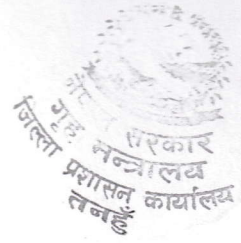 सरकार
गृह मन्त्रालय
जिल्ला प्रशासन कार्यालय
तनहुँ